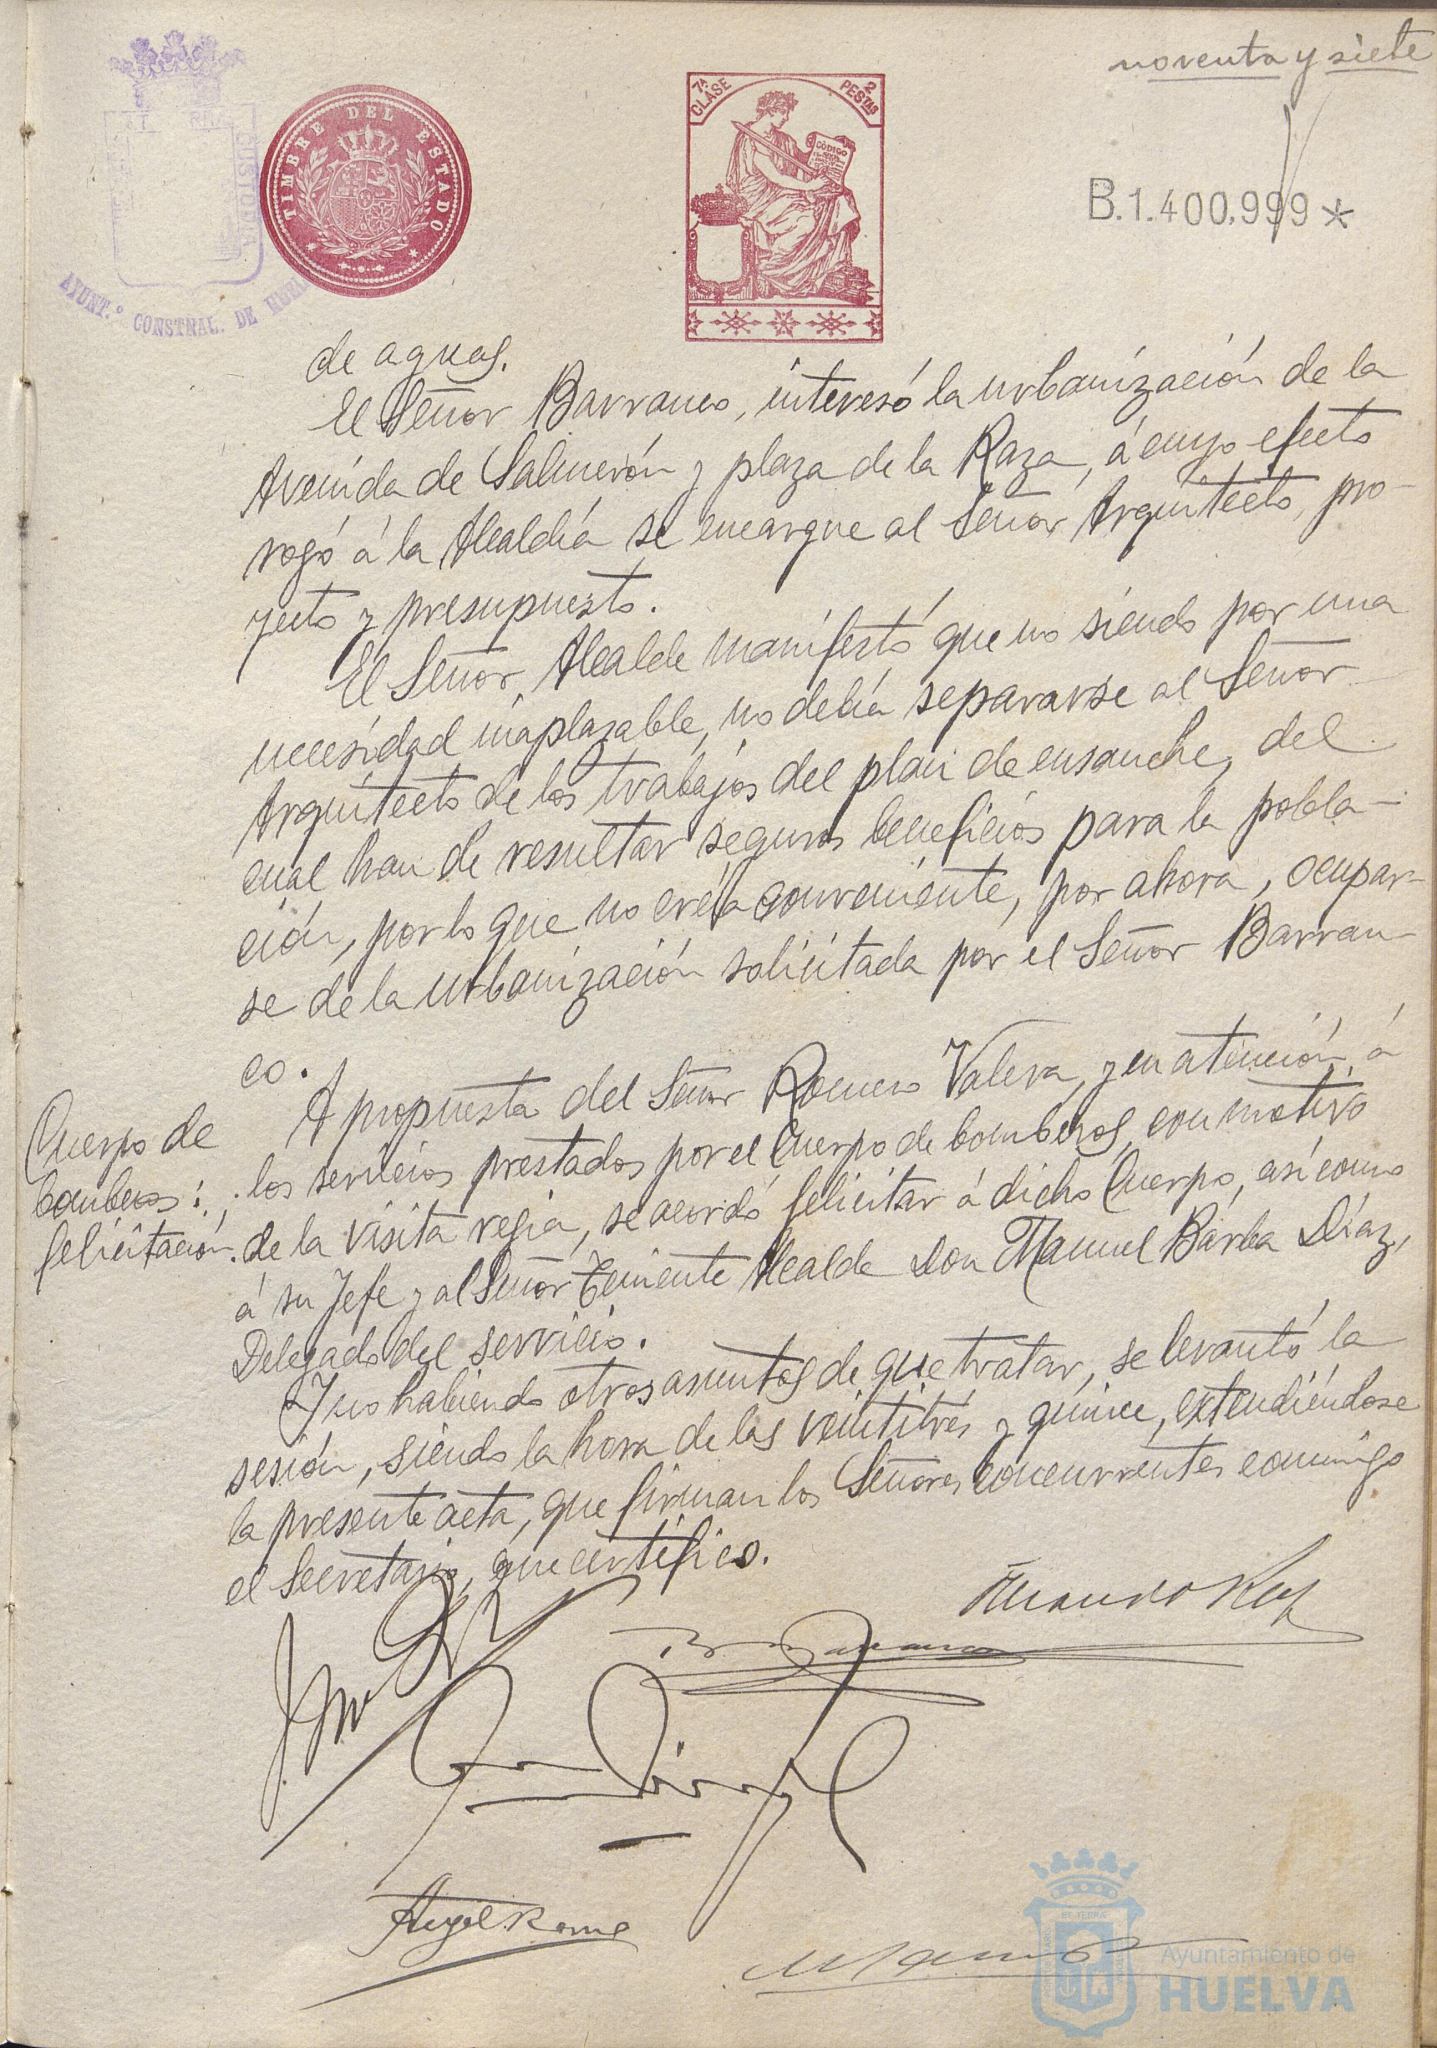 noventa y siete
TIMBRE DEL ESTADO
7ª CLASE
2 PESTAS
CÓDIGO
B.1.400,999*
CUSTODIA
AYUNT.º CONSTNAL. DE
de aguas.
El Señor Barranco, interesó la urbanización de la
Avenida de Salmerón y plaza de la Raza, á cuyo efecto
rogó á la Alcaldía se encargue al Señor Arquitecto, pro-
yecto y presupuesto.
El Señor Alcalde manifestó que no siendo por una
necesidad inaplazable, no debía separarse al Señor
Arquitecto de los trabajos del plan de ensanche, del
cual han de resultar seguros beneficios para la pobla-
ción, por lo que no creía conveniente, por ahora, ocupar-
se de la urbanización solicitada por el Señor Barran-
co.
Cuerpo de
bomberos:
felicitación.
A propuesta del Señor Romero Valera, y en atención á
los servicios prestados por el Cuerpo de bomberos, con motivo
de la visita regia, se acordó felicitar á dicho Cuerpo, así como
á su Jefe y al Señor Teniente Alcalde Don Manuel Bárba Díaz,
Delegado del servicio.
Y no habiendo otros asuntos de que tratar, se levantó la
sesión, siendo la hora de las veintitrés y quince, extendiéndose
la presente acta, que firman los Señores concurrentes conmigo
el Secretario, que certifico.
Ayuntamiento de
HUELVA